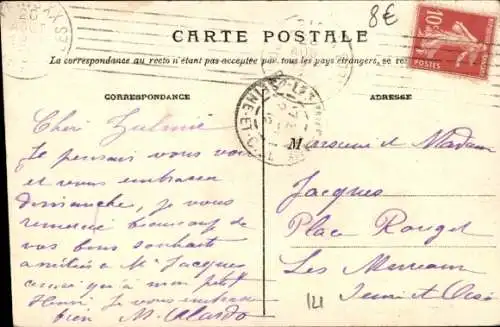 8€
CARTE POSTALE
La correspondance au recto n'étant pas acceptée par tous les pays étrangers, se
CORRESPONDANCE
ADRESSE
10c
POSTES
SEINE-ET-OISE
Cheri Zulmie
Je pensais vous voir
et vous embrasser
dimanche, je vous
remercie beaucoup de
vos bons souhaits
amitiés à Mr Jacques
ainsi qu'à mon petit
Henri Je vous embrasse
bien M.
Monsieur et Madame
Jacques
Place Rouget
Les Mureaux
Seine et Oise
121